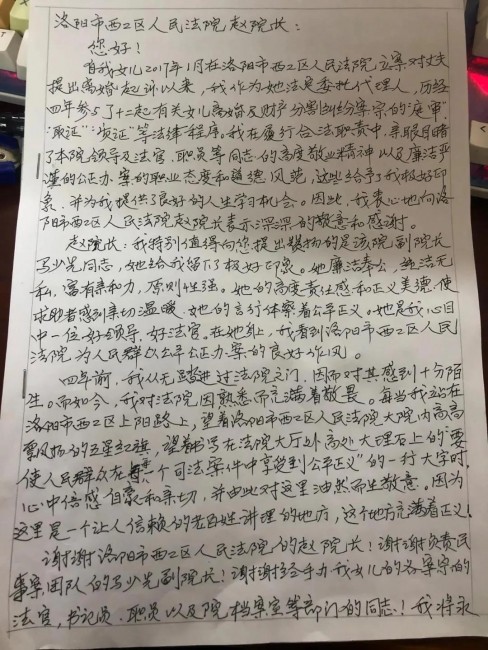 洛阳市西工区人民法院赵院长：
您好！
自我女儿2017年1月在洛阳市西工区人民法院立案对丈夫
提出离婚起诉以来，我作为她法定委托代理人，历经
四年参与了十二起有关女儿离婚及财产分割纠纷案宗的"庭审"
"取证""质证"等法律程序。我在履行合法职责中，亲眼目睹
了本院领导及法官、职员等同志的高度敬业精神以及廉洁严
谨的公正办案的职业态度和道德风范，这些给予了我极好印
象，并为我提供了良好的人生学习机会。因此，我衷心地向洛
阳市西工区人民法院赵院长表示深深的敬意和感谢。
赵院长：我特别值得向您提出褒扬的是该院副院长
马少先同志，她给我留下极好印象。她廉洁奉公，纯洁无
私，富有亲和力，原则性强。她的高度责任感和正义美德，使
求助者感到亲切温暖，她的言行体察着公平正义。她是我心目
中一位好领导，好法官。在她身上，我看到洛阳市西工区人民
法院为人民群众公平公正办案的良好作风。
四年前，我从无踏进过法院之门，因而对其感到十分陌
生。而如今，我对法院因熟悉而充满着敬畏。每当我站在
洛阳市西工区上阳路上，望着洛阳市西工区人民法院大院内高高
飘扬的五星红旗，望着书写在法院大厅外高处大理石上的"要
使人民群众在个司法案件中享受到公平正义"的一行大字时，
心中倍感自豪和亲切，并由此对这里油然而生敬意。因为
这里是一个让人信赖的老百姓讲理的地方，这个地方充满着正义！
谢谢洛阳市西工区人民法院的赵院长！谢谢负责民
事案团队的马少先副院长！谢谢经手办我女儿的各案宗的
法官，书记员、职员以及院档案室等部门的同志！我将永